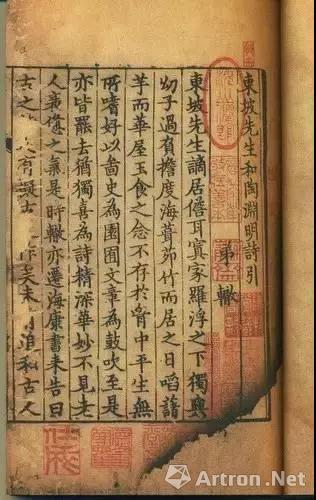 東坡先生和陶淵明詩引
弟轍
東坡先生謫居儋耳寘家羅浮之下獨與
幼子過負擔度海葺茆竹而居之日啗藷
芋而華屋玉食之念不存於胷中平生無
所嗜好以啚史為園囿文章為鼓吹至是
亦皆罷去猶獨喜為詩精深華妙不見老
人衰憊之氣是時轍亦遷海康書來告曰
古之有擬古作矣未追和古人
Artron.Net